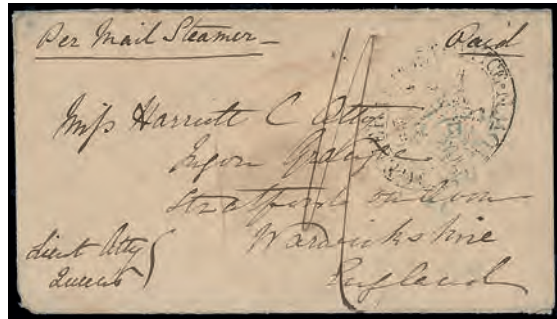 Per Mail Steamer
Paid
Miss Harriett C Atty
Ingon
Stratford on Avon
Warwickshire
England
Lieut Atty
Queens